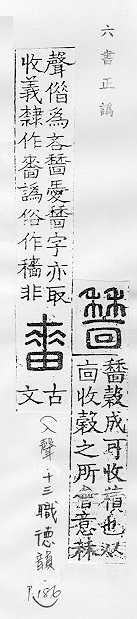 六書正譌
嗇穀成可收積也从
㐭收穀之所會意秝
聲借為吝嗇愛嗇字亦取
收義隸作嗇譌俗作穡非
古文
(入聲十三職德韻
P.186